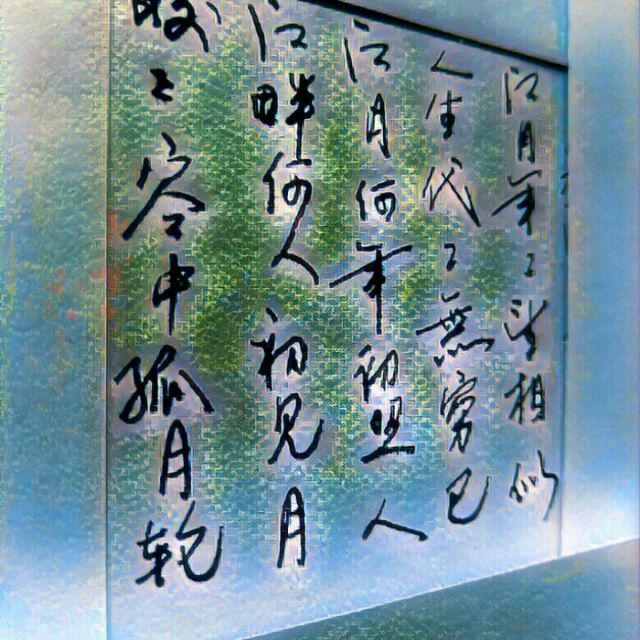 皎々空中孤月轮
江畔何人初見月
江月何年初照人
人生代々無穷已
江月年々望相似